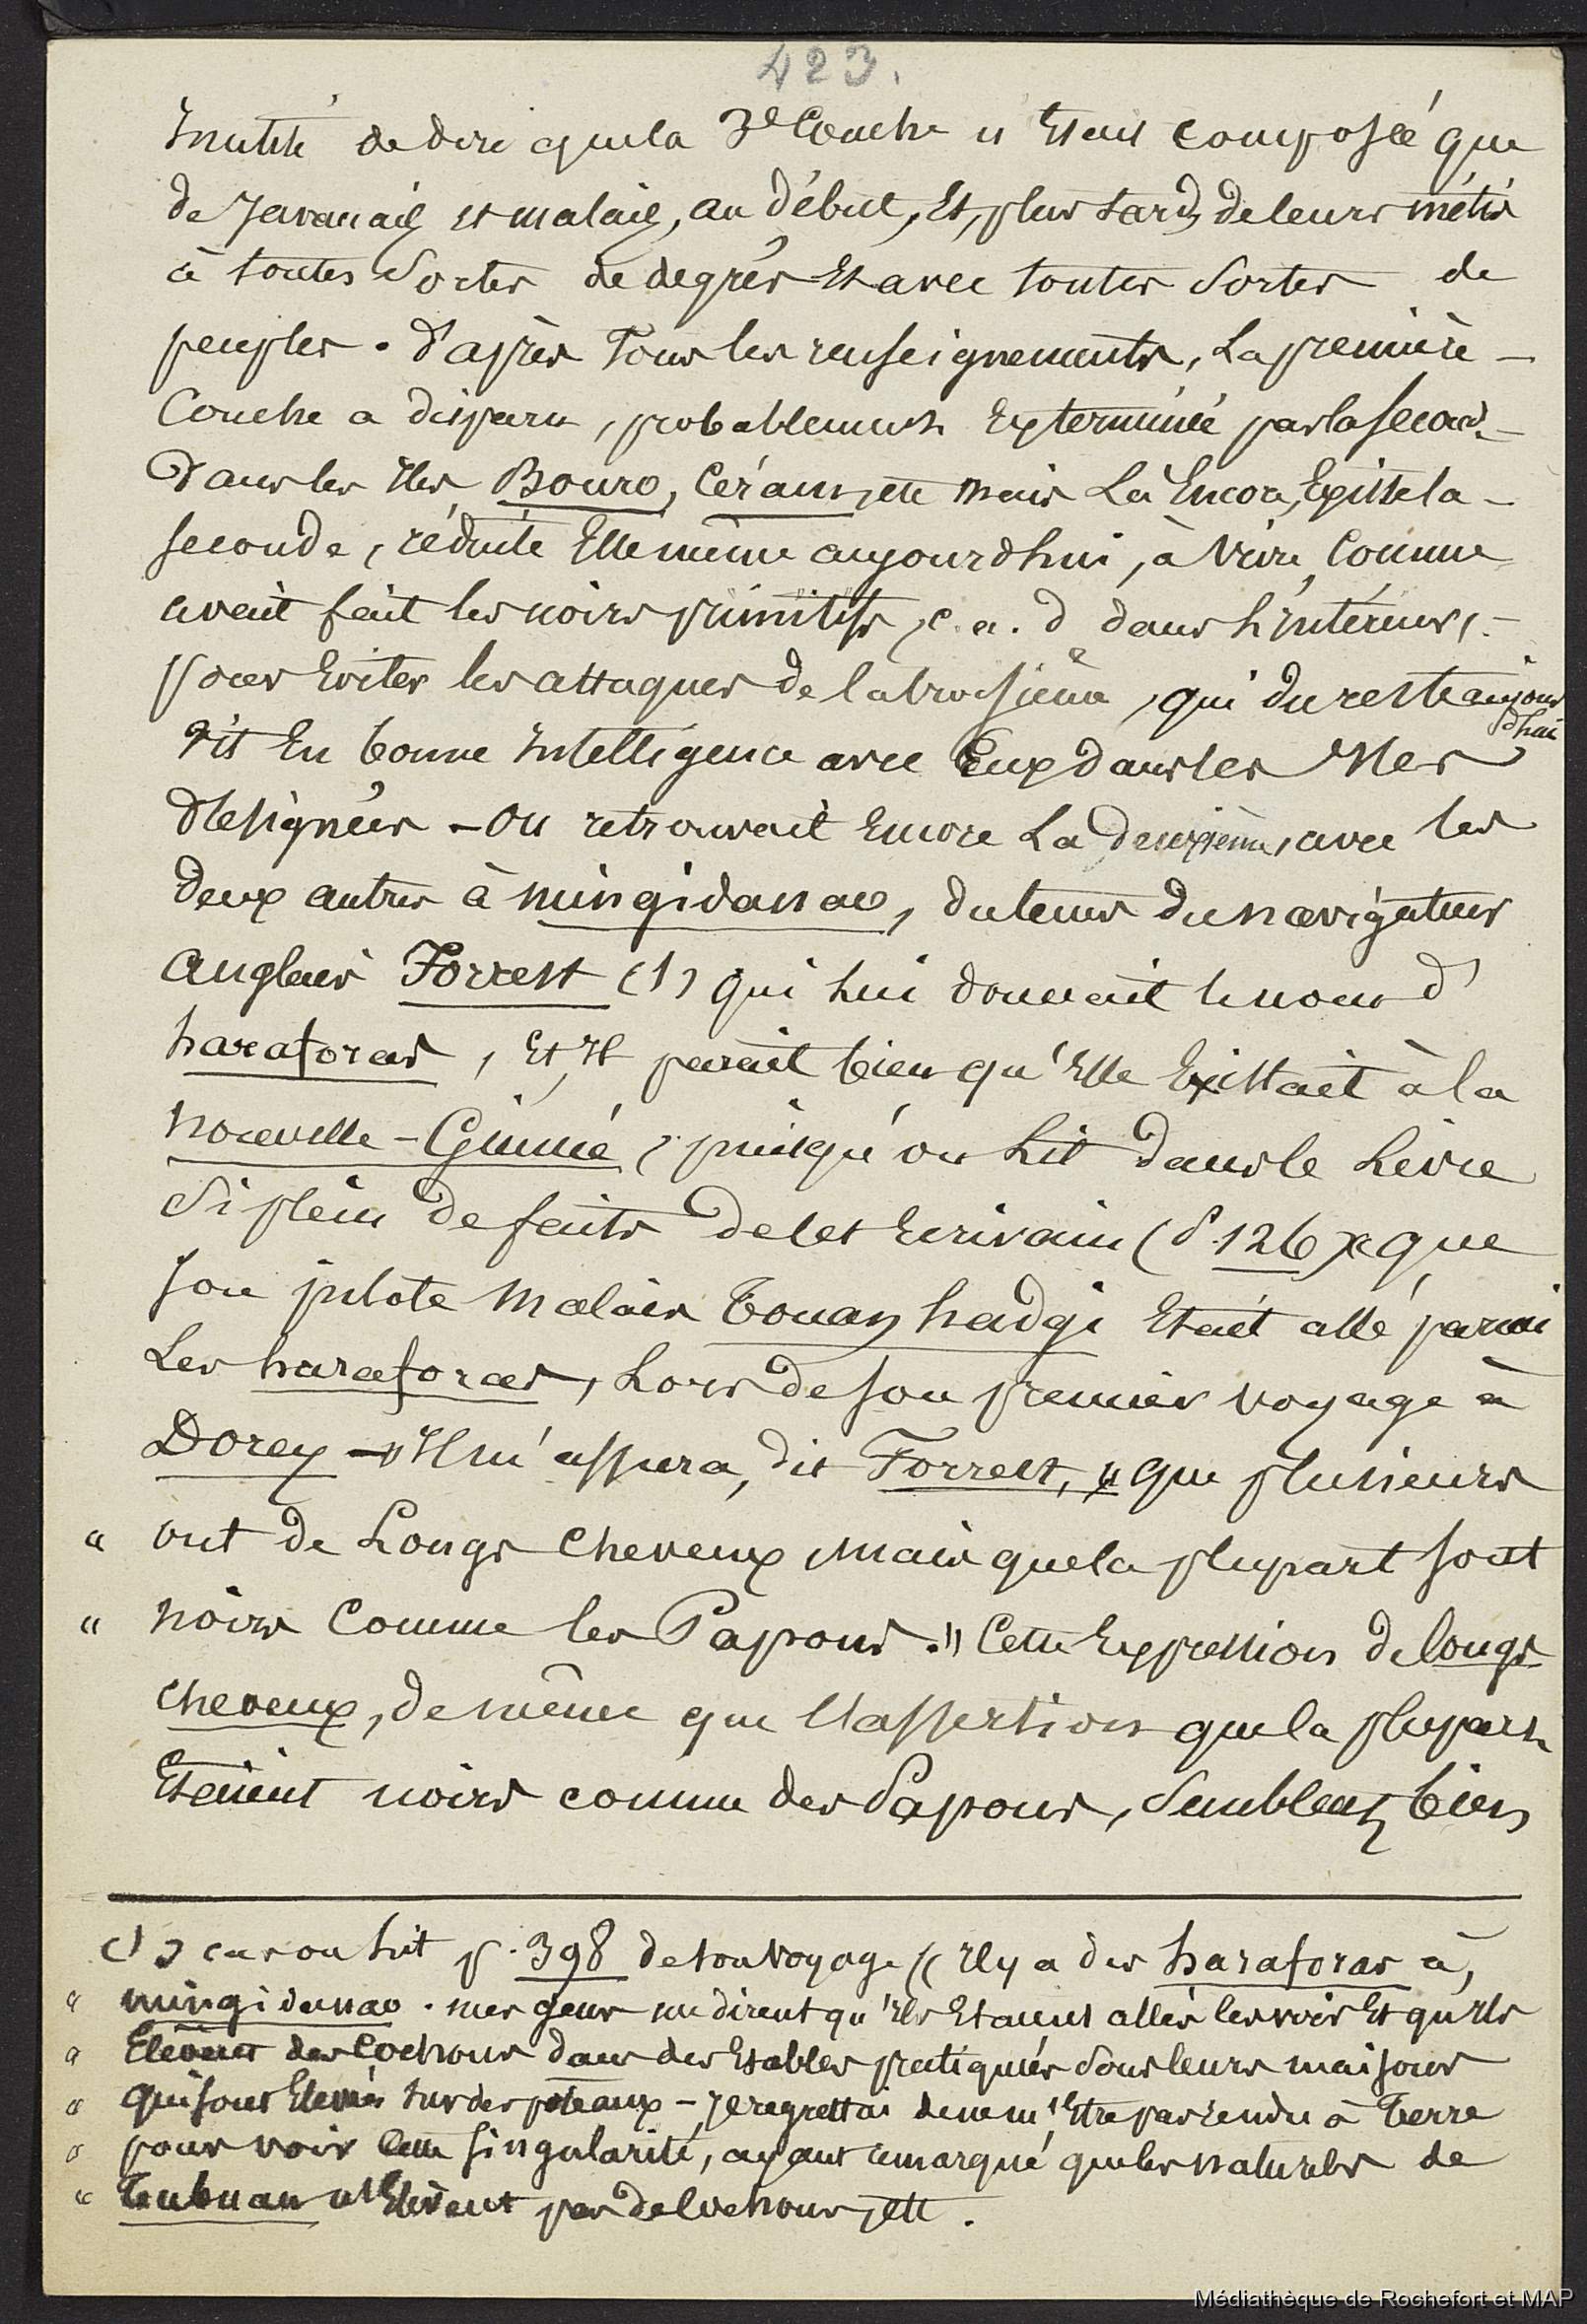 423.
Inutile de dire que la 3e Couche n'était composée que
de Javanais et malais, au début, et, plus tard, de leurs métis
à toutes sortes de degrés et avec toutes sortes de
peuples. d'après tous les renseignements, la première -
Couche a disparu, probablement exterminée par la second. -
Dans les Iles Bouro, Céram, ete mais Là Encore, Existe la -
seconde, réduite Elle même aujourdhui, à vivre, Comme
avait fait les noirs primitifs, c. a. d dans l'intérieur, -
pour Eviter les attaques de la troisième, qui du reste aujour
dhui
vit En bonne Intelligence avec Eux dans les Iles
désignées - On retrouvait Encore La deuxième, avec les
deux autres à mingidanao, du tems du navigateur
anglais Forrest (1) qui lui donnait le nom d'
haraforas, Et Il parait bien qu'Elle Existait à la
nouvelle-Guinée, puisqu'on Lit dans le Livre
si plein de faits de cet Ecrivain (P. 126) que
son pilote malais Touan hadgi Etait allé parmi
Les haraforas, Lors de son premier voyage à
Dorey - "Il m'assura, dit Forrest, "que plusieurs
" ont de Longs Cheveux, mais que la plupart sont
" noirs Comme les Papous." Cette Expression de longs
cheveux, de même que l'assertion que la plupart
Etaient noirs comme des Papous, Semblent bien
(1) car on lit p. 398 de son voyage "Il y a des haraforas à,
" mingidanao. mes gens me dirent qu'Ils Etaient allés les voir Et qu'Ils
" Elèvent des Cochons dans des Etables pratiquées Sous leurs maisons
" qui sont Elevées sur des poteaux - Je regrettai de ne m'Etre pas rendu à terre
" pour voir cette singularité, ayant remarqué que les naturels de
" Tubuan n'Elèvent pas de Cochons, ete.
Médiathèque de Rochefort et MAP